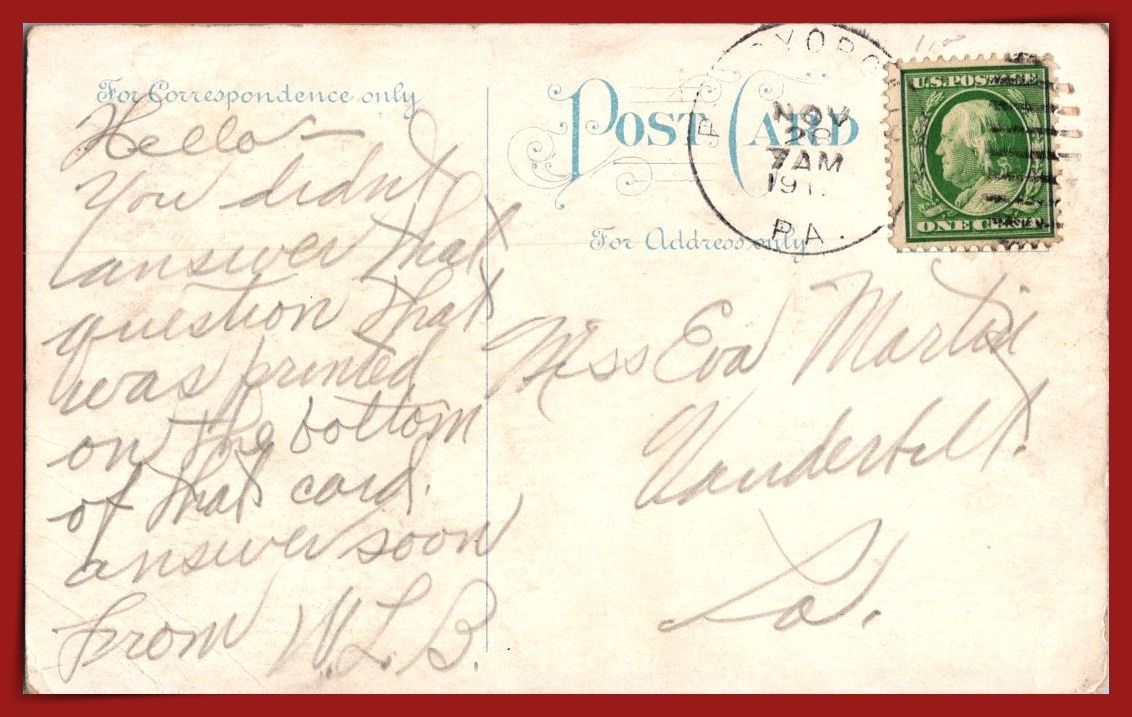 For Correspondence only
Hello —
You didnt
answer that
question that
was printed
on the bottom
of that card.
answer soon
from W.L.B.
POST CARD
For Address only
NOV
7 AM
191
PA.
U.S. POSTAGE
ONE CENT
Miss Eva Martin
Vanderbilt.
Pa.